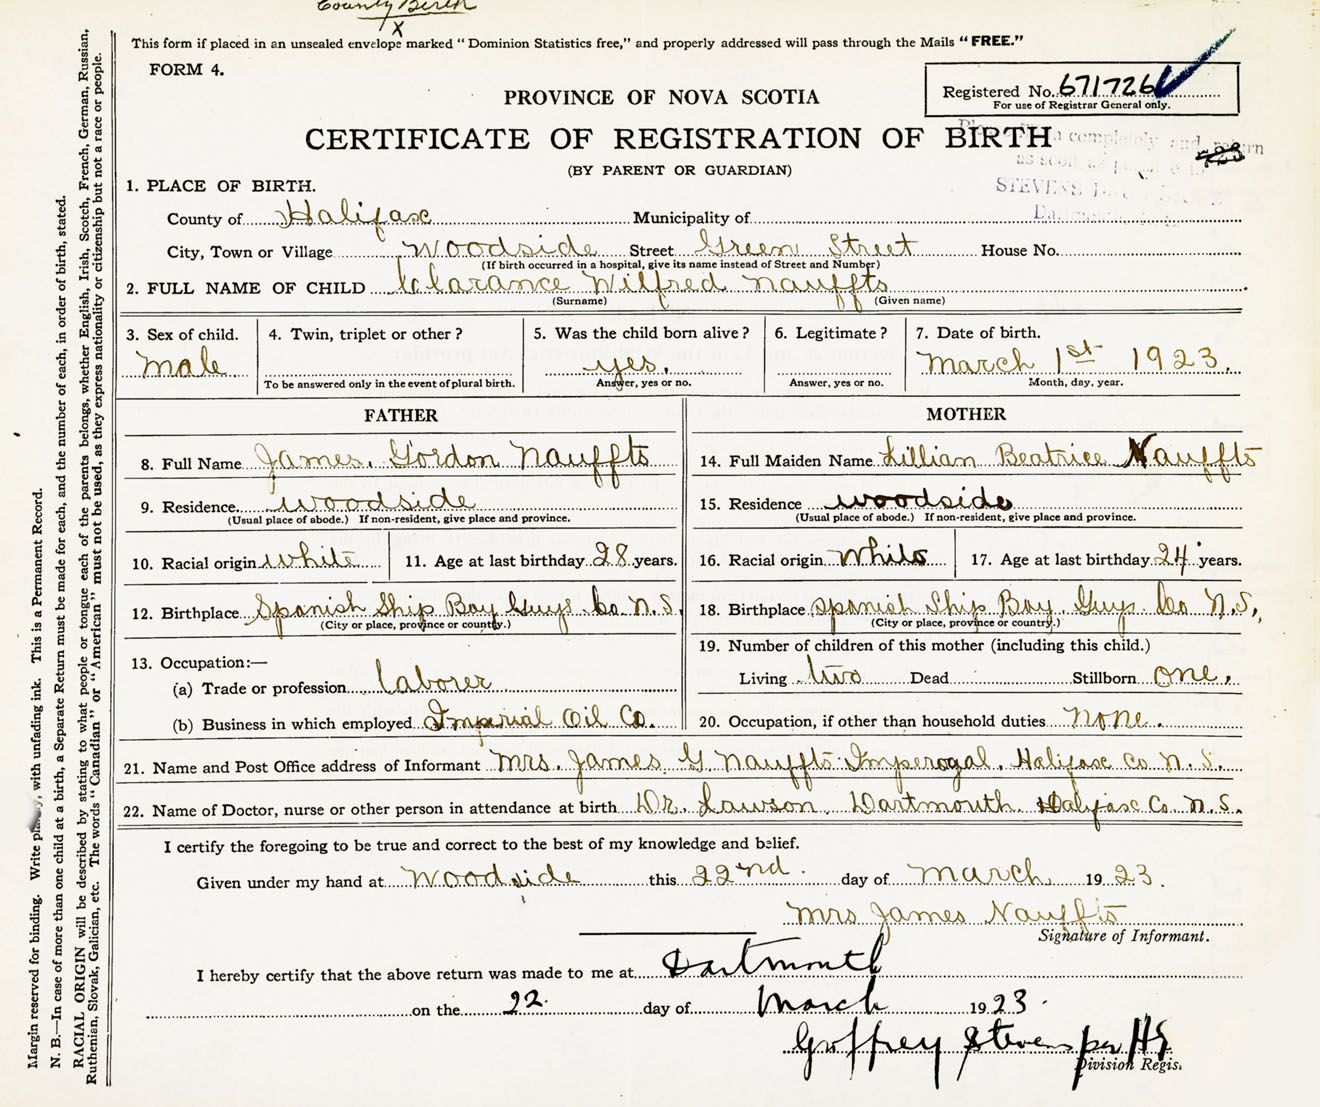 County Birth
X
This form if placed in an unsealed envelope marked "Dominion Statistics free," and properly addressed will pass through the Mails "FREE."
FORM 4.
Registered No. 671726
For use of Registrar General only.
PROVINCE OF NOVA SCOTIA
CERTIFICATE OF REGISTRATION OF BIRTH
(BY PARENT OR GUARDIAN)
completely and return
as soon as
STEVENS
723
1. PLACE OF BIRTH.
County of Halifax Municipality of
City, Town or Village Woodside Street Green Street House No.
(If birth occurred in a hospital, give its name instead of Street and Number)
2. FULL NAME OF CHILD Clarance Wilfred Nauffts
(Surname) (Given name)
3. Sex of child. 4. Twin, triplet or other? 5. Was the child born alive? 6. Legitimate? 7. Date of birth.
Male yes. March 1st 1923.
To be answered only in the event of plural birth. Answer, yes or no. Answer, yes or no. Month, day, year.
FATHER
8. Full Name James. Gordon Nauffts
9. Residence Woodside
(Usual place of abode.) If non-resident, give place and province.
10. Racial origin white 11. Age at last birthday 28 years.
12. Birthplace Spanish Ship Bay Guys. Co N.S.
(City or place, province or country.)
13. Occupation:—
(a) Trade or profession laborer
(b) Business in which employed Imperial Oil Co.
MOTHER
14. Full Maiden Name Lillian Beatrice Nauffts
15. Residence woodside
(Usual place of abode.) If non-resident, give place and province.
16. Racial origin white 17. Age at last birthday 24 years.
18. Birthplace Spanish Ship Bay Guys Co N.S.,
(City or place, province or country.)
19. Number of children of this mother (including this child.)
Living two Dead Stillborn one.
20. Occupation, if other than household duties none.
21. Name and Post Office address of Informant Mrs. James. G Nauffts Imperogal. Halifax Co N.S.
22. Name of Doctor, nurse or other person in attendance at birth Dr. Lawson Dartmouth Halifax Co. N.S.
I certify the foregoing to be true and correct to the best of my knowledge and belief.
Given under my hand at Woodside this 22nd. day of March 1923.
Mrs James Nauffts
Signature of Informant.
I hereby certify that the above return was made to me at Dartmouth
on the 22. day of March 1923.
Geoffrey Stevens per HS
Division Regis.
Margin reserved for binding. Write plainly, with unfading ink. This is a Permanent Record.
N. B.—In case of more than one child at a birth, a Separate Return must be made for each, and the number of each, in order of birth, stated.
RACIAL ORIGIN will be described by stating to what people or tongue each of the parents belongs, whether English, Irish, Scotch, French, German, Russian,
Ruthenian, Slovak, Galician, etc. The words "Canadian" or "American" must not be used, as they express nationality or citizenship but not a race or people.